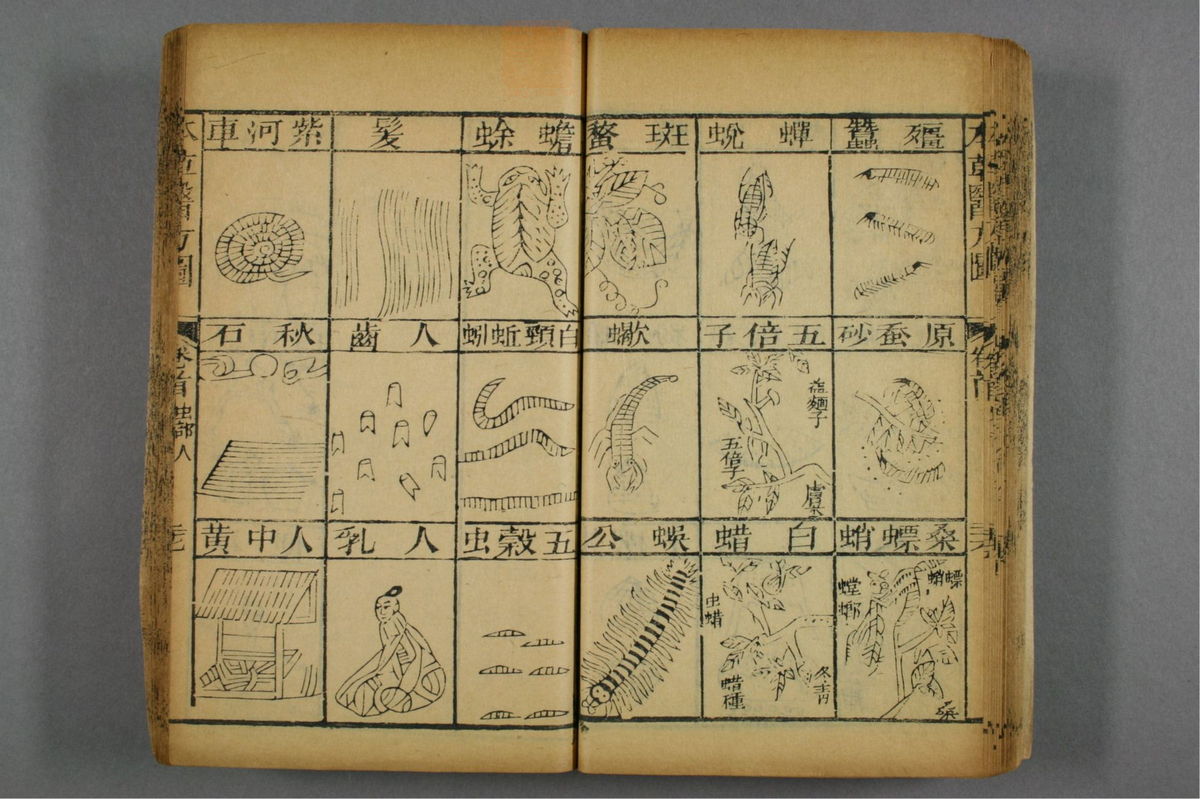 殭蠶
蟬蛻
斑螯
原蚕砂
五倍子
蠍
桑螵蛸
白蜡
蜈公
五倍子
虫蜡
蜡種
冬青
螳螂
螵蛸
桑
蟾蜍
髮
紫河車
白頸蚯蚓
人齒
秋石
五穀虫
人乳
人中黃
本草醫方圖
虫部人